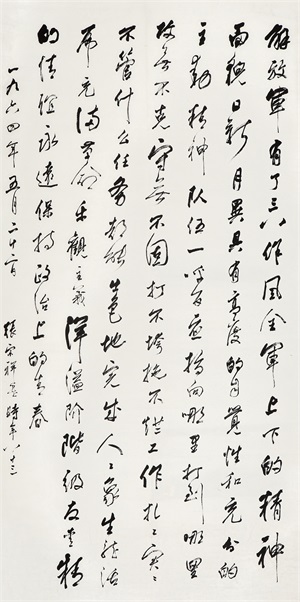 解放军有了三八作风全军上下的精神
面貌日新月異具有高度的自覺性和充分的
主動精神队伍一呼百应指向哪里打到哪里
攻無不克守無不固打不垮拖不烂工作扎扎实实
不管什么任务都能出色地完成人人象生龙活
虎充满革命乐觀主義洋溢阶階级友爱精
的情谊永遠保持政治上的青春
一九六四年五月二十二日
張宗祥 時年八十三